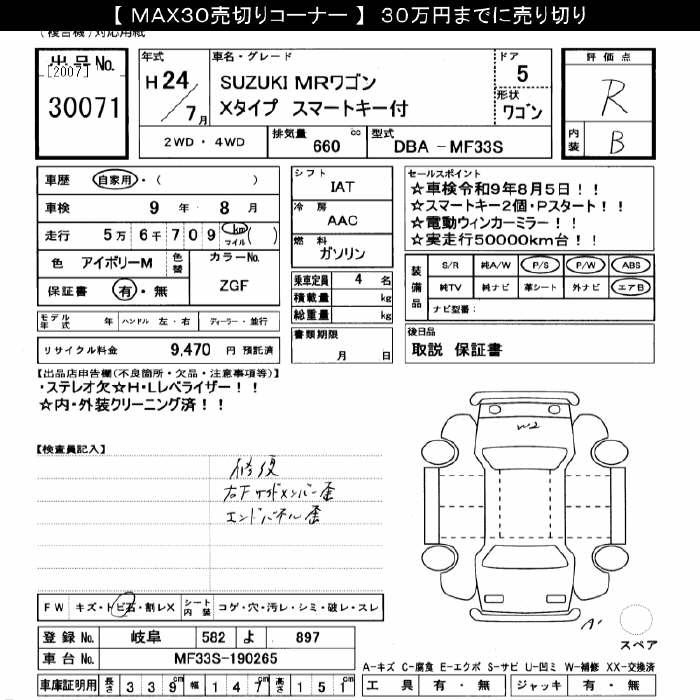 【 MAX30売切りコーナー 】 30万円までに売り切り
(複合機)対応用紙
出品 No.
[2007]
30071
年式
H 24
7 月
車名・グレード
SUZUKI MRワゴン
Xタイプ スマートキー付
ドア
5
形状
ワゴン
評価点
R
内装
B
2WD・4WD
排気量
660 cc
型式
DBA - MF33S
車歴 自家用・( )
車検 9 年 8 月
走行 5万 6千 7 0 9 km マイル ( )
色 アイボリーM 色替
カラーNo.
ZGF
保証書 有・無
シフト
IAT
冷房
AAC
燃料
ガソリン
乗車定員 4 名
積載量 kg
総重量 kg
セールスポイント
☆車検令和9年8月5日!!
☆スマートキー2個・Pスタート!!
☆電動ウィンカーミラー!!
☆実走行50000km台!!
装備品
S/R 純A/W P/S P/W ABS
純TV 純ナビ 革シート 外ナビ エアB
ナビ型番:
モデル年式 年 ハンドル 左・右 ディーラー・並行
リサイクル料金 9,470 円 預託済
書類期限
月 日
後日品
取説 保証書
【出品店申告欄(不良箇所・欠品・注意事項等)】
・ステレオ欠☆H・Lレベライザー!!
☆内・外装クリーニング済!!
【検査員記入】
修復
右下サイドメンバー歪
エンドパネル歪
W2
A'
スペア
FW キズ・トビ石・割レX シート内装 コゲ・穴・汚レ・シミ・破レ・スレ
登録 No. 岐阜 582 よ 897
車台 No. MF33S-190265
車庫証明用 長さ 339 cm 幅 147 cm 高さ 151 cm
A-キズ C-腐食 E-エクボ S-サビ U-凹ミ W-補修 XX-交換済
工具 有・無 ジャッキ 有・無